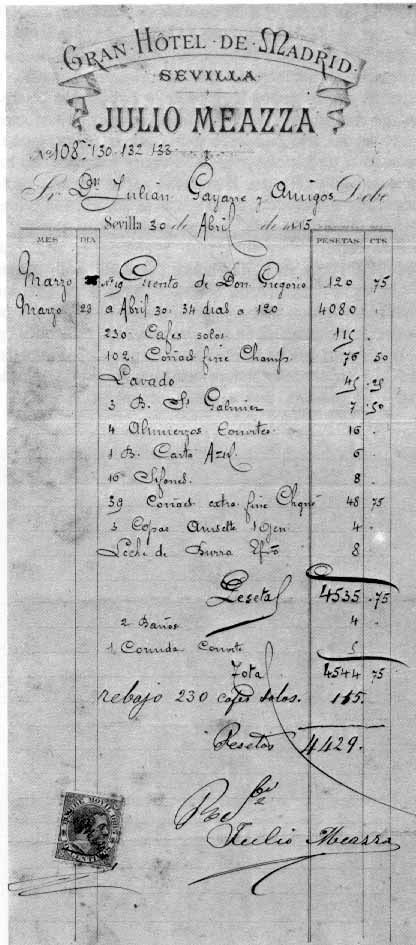 GRAN HÔTEL DE MADRID
SEVILLA
JULIO MEAZZA
Nos 108. 130. 132. 133
Sr Dn Julián Gayarre y Amigos Debe
Sevilla 30 de Abril de 1885
MES DIA PESETAS CTS
Marzo Cuenta de Don Gregorio 120 75
Marzo 28 a Abril 30. 34 dias a 120 4080
230 Cafes solos 115
102 Coñacs fine Champ. 76 50
Lavado 45 25
3 B. St Galmier 7 50
4 Almuerzos Convite 16
1 B. Carta Azul 6
16 Sifones 8
39 Coñacs extra fine Chgne 48 75
3 Copas Anisette 1 Ojen 4
Leche de Burra 8
Pesetas 4535 75
2 Baños 4
1 Comida Convite 5
Total 4544 75
rebajo 230 cafes solos. 115.
Pesetas 4429.
Julio Meazza